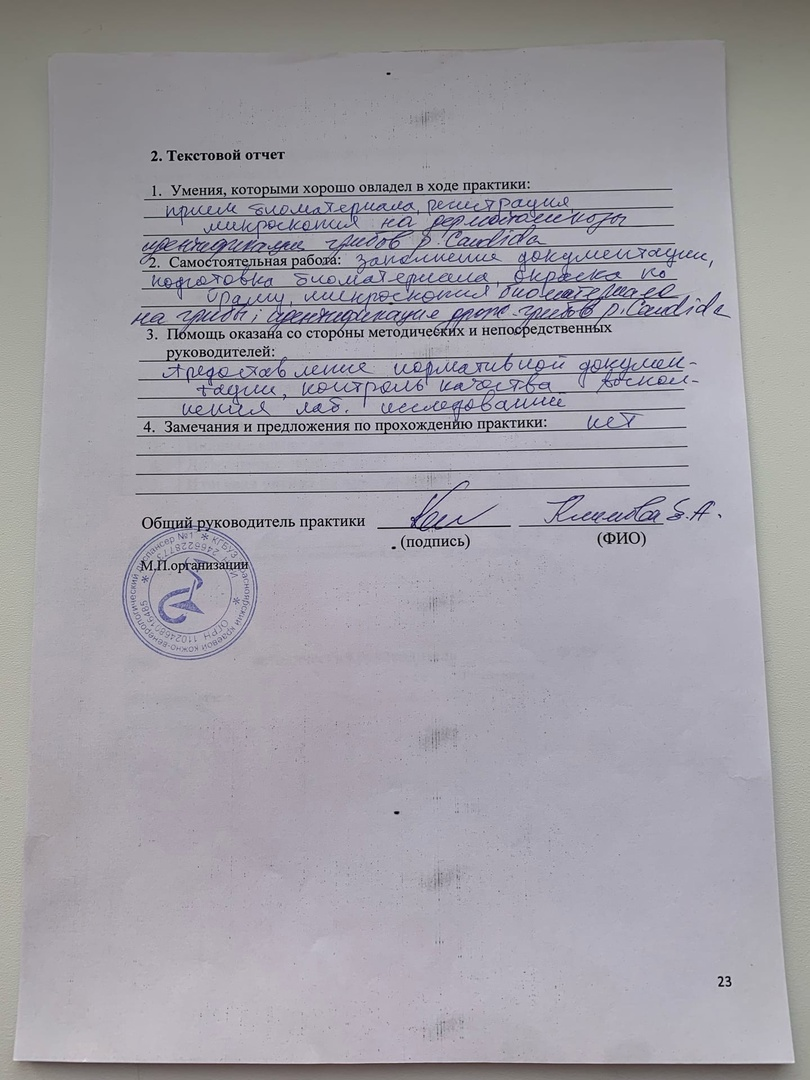 2. Текстовой отчет
1. Умения, которыми хорошо овладел в ходе практики:
прием биоматериала, регистрация
микроскопия на дерматомикозы
идентификация грибов р. Candida
2. Самостоятельная работа: заполнение документации,
подготовка биоматериала, окраска по
Граму, микроскопия биоматериала
на грибы; идентификация дрож. грибов р. Candida
3. Помощь оказана со стороны методических и непосредственных
руководителей:
Предоставление нормативной докумен-
тации, контроль качества выпол-
нения лаб. исследований
4. Замечания и предложения по прохождению практики: нет
Общий руководитель практики Климова Е.А.
(подпись) (ФИО)
М.П.организации
КГБУЗ Красноярский краевой кожно-венерологический диспансер №1
ОГРН
23